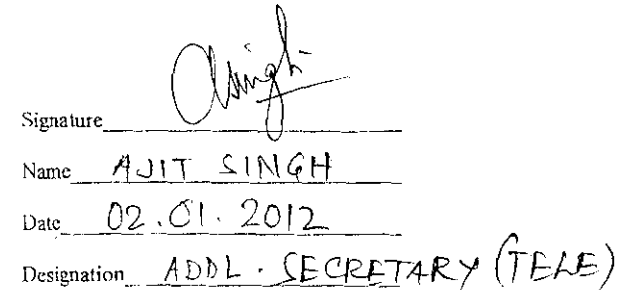 Signature asingh
Name AJIT SINGH
Date 02.01.2012
Designation ADDL. SECRETARY (TELE)